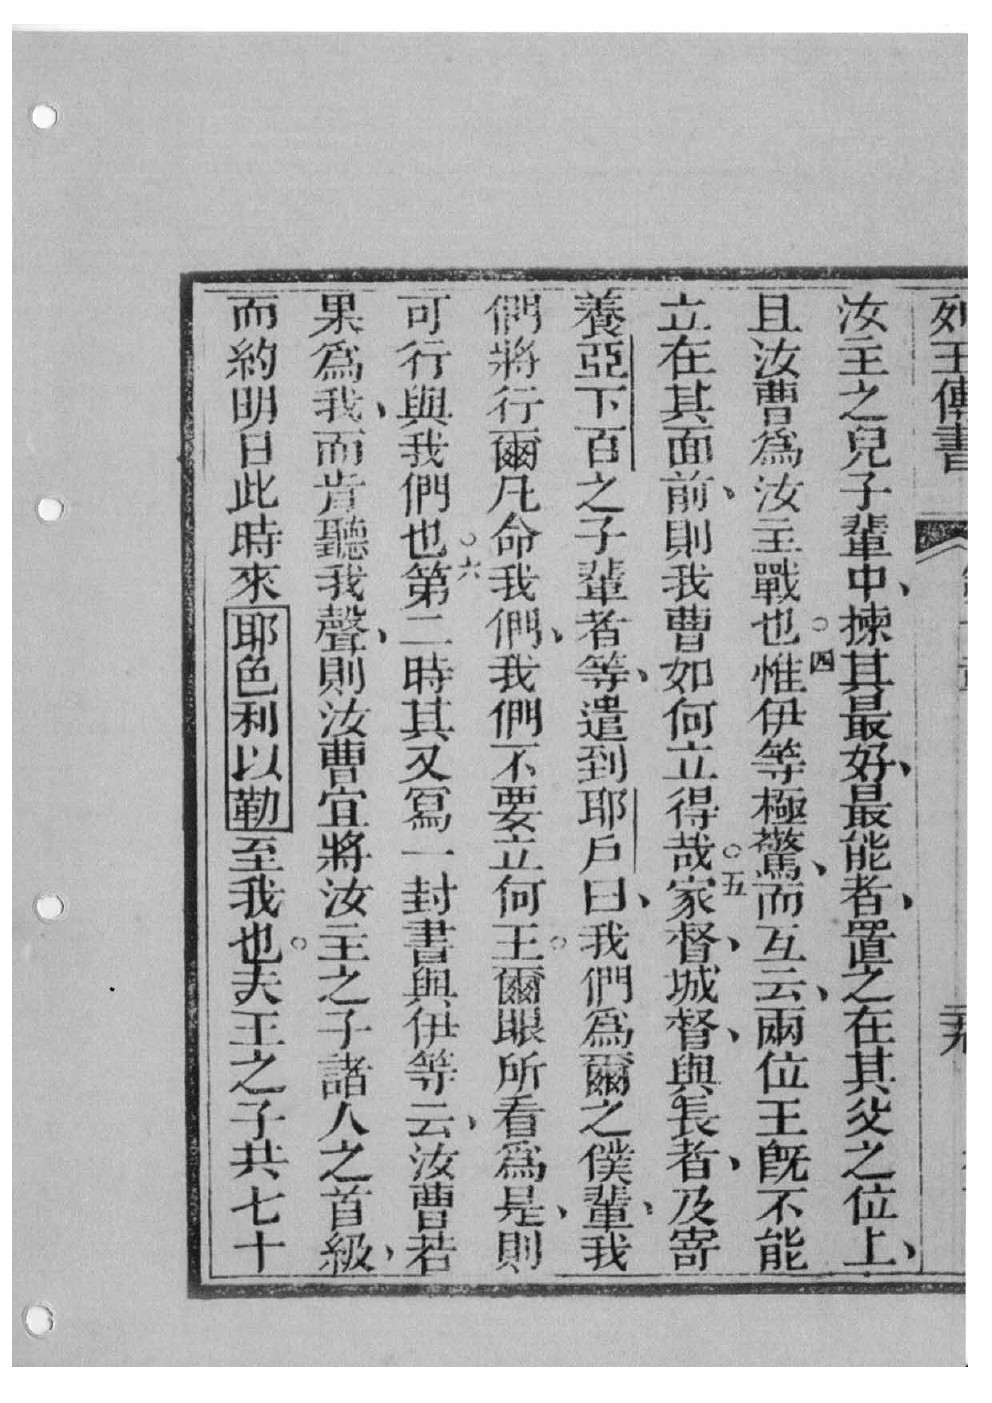 列王傳書
汝主之兒子輩中、揀其最好、最能者、置之在其父之位上、
且汝曹爲汝主戰也。四惟伊等極驚、而互云、兩位王旣不能
立在其面前、則我曹如何立得哉。五家督、城督、與長者、及寄
養亞下百之子輩者等、遣到耶戶曰、我們爲爾之僕輩、我
們將行爾凡命我們、我們不要立何王。爾眼所看爲是、則
可行與我們也。六第二時其又寫一封書與伊等云、汝曹若
果爲我、而肯聽我聲、則汝曹宜將汝主之子諸人之首級、
而約明日此時來耶色利以勒至我也。夫王之子共七十